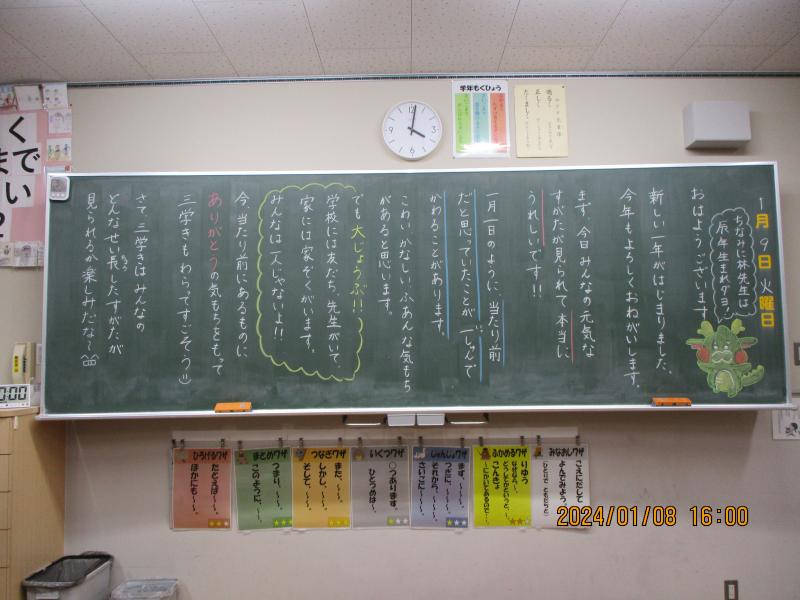 1月9日 火曜日
ちなみに林先生は
辰年生まれダヨ!
おはようございます
新しい一年がはじまりました。
今年もよろしくおねがいします。
まず、今日みんなの元気な
すがたが見られて本当に
うれしいです!!
一月一日のように、当たり前
だと思っていたことが一しゅんで
かわることがあります。
こわい、かなしい、ふあんな気もち
があると思います。
でも大じょうぶ!!
学校には友だち、先生がいて、
家には家ぞくがいます。
みんなは一人じゃないよ!!
今、当たり前にあるものに
ありがとうの気もちをもって
三学きもわらってすごそう
さて、三学きはみんなの
どんなせい長したすがたが
見られるか楽しみだな〜
学年もくひょう
ひろげるワザ
たとえば〜〜。
ほかにも〜〜。
まとめワザ
つまり、〜〜。
このように、〜〜。
つなぎワザ
また、〜〜。
しかし、〜〜。
そして、〜〜。
いくつワザ
〇つあります。
ひとつめは〜。
じゅんじょワザ
まず、〜〜。
つぎに、〜〜。
それから、〜〜。
さいごに〜〜。
ふかめるワザ
りゆう
なぜなら〜。
どうしてかというと、〜。
こんきょ
〜にかいてあるので〜。
みなおしワザ
こえにだして
よんでみよう
2024/01/08 16:00